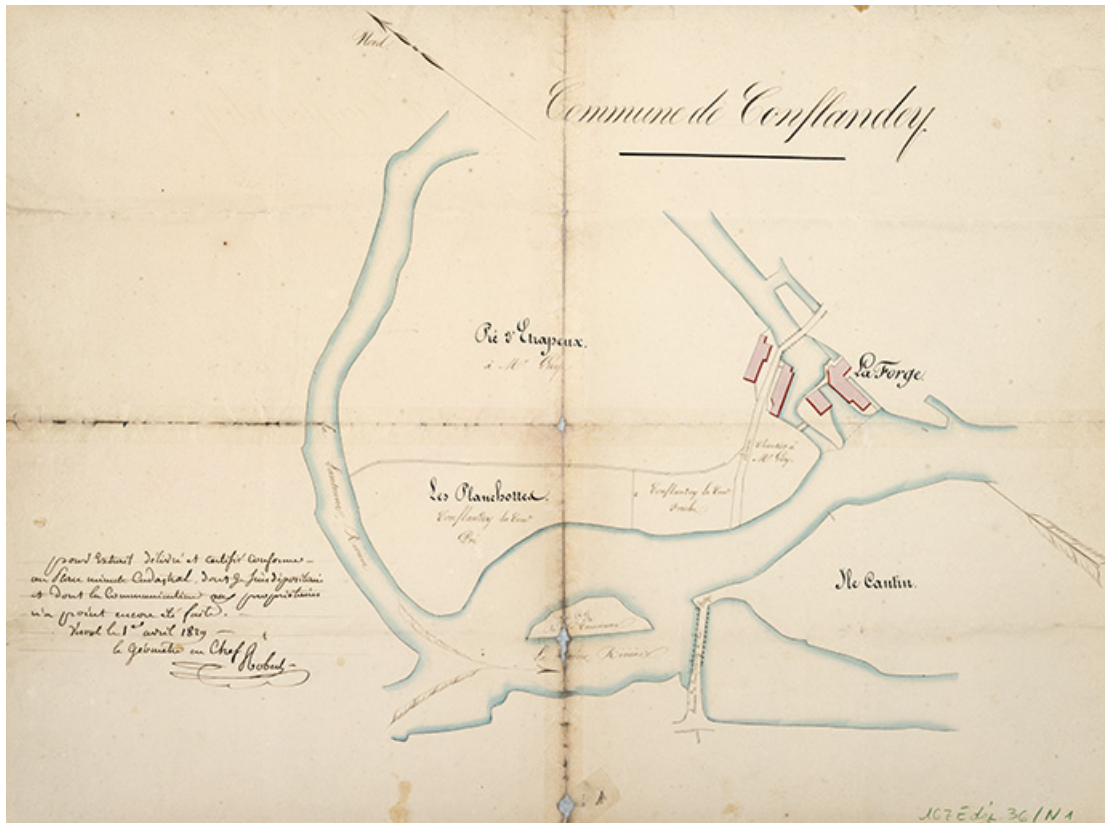 Nord
Commune de Conflandey
Pré d'Etrapeux.
à Mr Gley
La Forge
Chantier à
Mr Gley
Les Planchottes.
Conflandey la Com^e
Pré
Conflandey la Com^e
la Lanterne Rivière
Ile Cantin.
La Saône Rivière
pour Extrait délivré et certifié conforme
au Plan minute Cadastral, dont je suis dépositaire
et dont la Communication aux propriétaires
n'a point encore été faite.
Vesoul le 1er avril 1829
le Géomètre en Chef
167 E dép. 36 / N 1